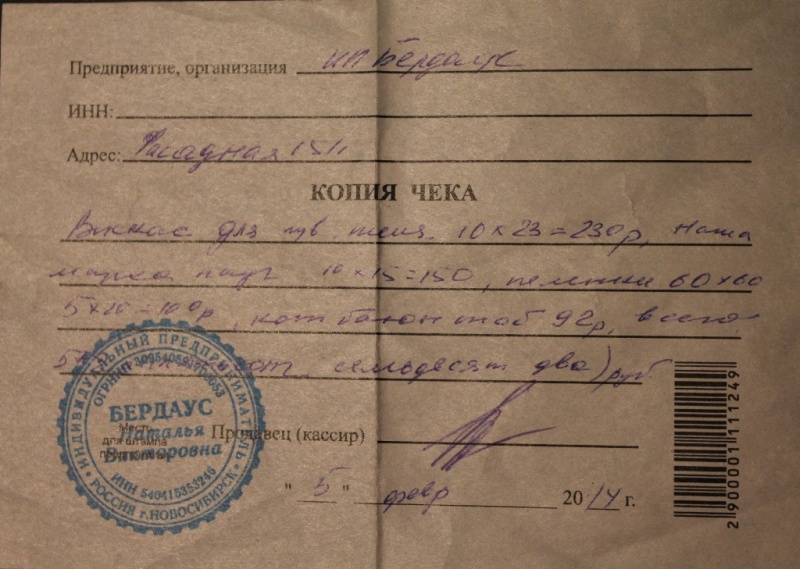 Предприятие, организация ИП Бердаус
ИНН:
Адрес: Фасадная 15/1
КОПИЯ ЧЕКА
для 10 x 23 = 230р, Наша
марка 10 x 15 = 150, пеленки 60 x 60
5 x 20 = 100р, 92р, всего
семьдесят два) руб.
ИНДИВИДУАЛЬНЫЙ ПРЕДПРИНИМАТЕЛЬ
ОГРНИП
БЕРДАУС
Наталья
Викторовна
ИНН 540415353246
РОССИЯ г.НОВОСИБИРСК
Место
для штампа
Продавец (кассир)
" 5 " февр 2014 г.
2 900001 111249